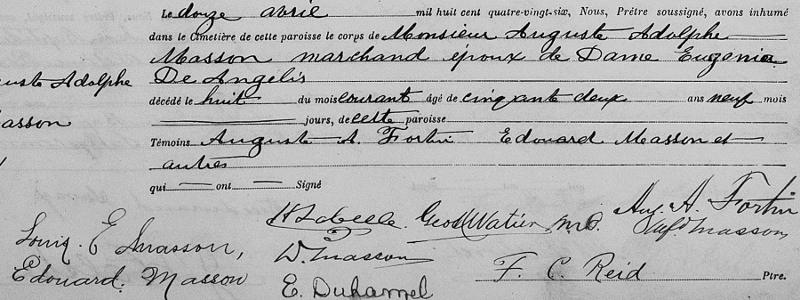 Le douze avril mil huit cent quatre-vingt-six, Nous, Prêtre soussigné, avons inhumé
dans le Cimetière de cette paroisse le corps de Monsieur Auguste Adolphe
Masson marchand époux de Dame Eugenie
De Angelis
décédé le huit du mois courant âgé de cinquante deux ans neuf mois
jours, de cette paroisse
Témoins Auguste A. Fortin Edouard Masson et
autres
qui ont Signé
Adolphe
Masson
Aug. A. Fortin
Louis E Masson,
D. Masson
Masson
Edouard. Masson
E. Duhamel
F. C. Reid Ptre.